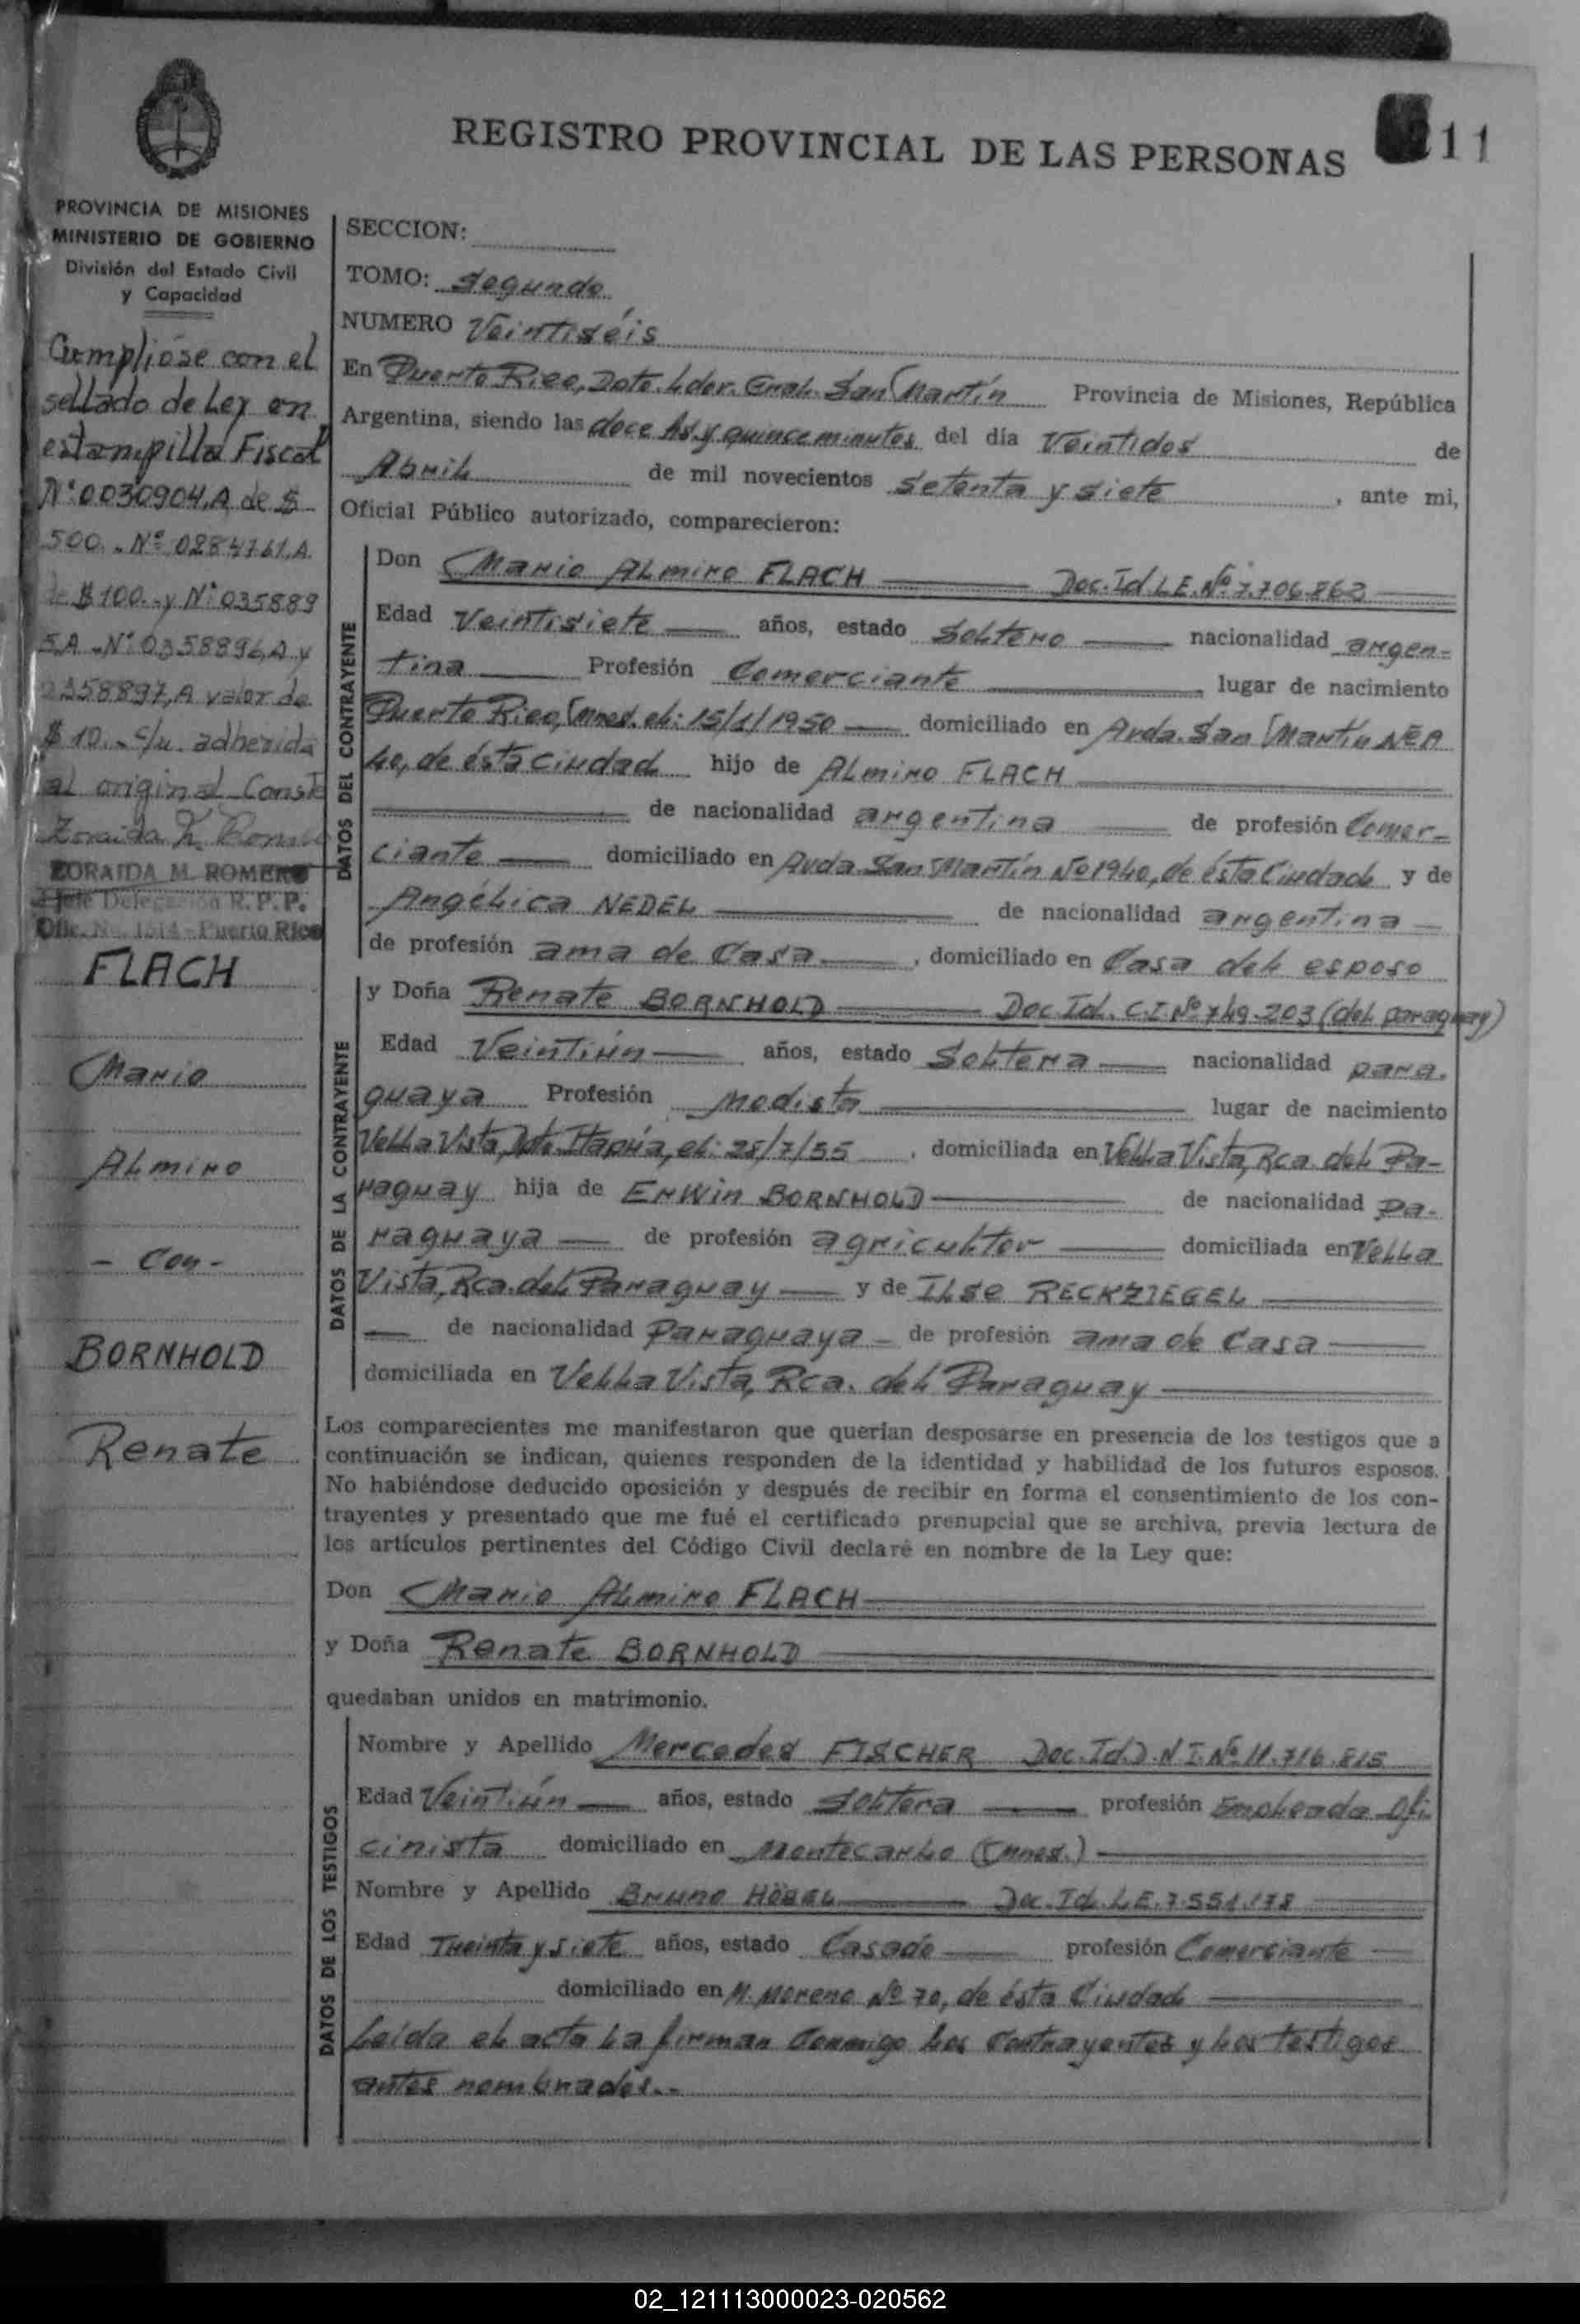 REGISTRO PROVINCIAL DE LAS PERSONAS
11
PROVINCIA DE MISIONES
MINISTERIO DE GOBIERNO
División del Estado Civil
y Capacidad
Cumplióse con el
sellado de Ley en
estampilla Fiscal
Nº0030904,A de $
500.- Nº 0284761.A.
de $100.- y Nº 035889
5.A - Nº 0358896,A y
0358897,A valor de
$ 10.- c/u. adherida
al original Conste
ZORAIDA M. ROMERO
Jefe Delegación R. P. P.
Ofic. No. 1514 - Puerto Rico
FLACH
Mario
Almiro
- Con -
BORNHOLD
Renate
SECCION:
TOMO: Segundo
NUMERO Veintiséis
En Puerto Rico, Dpto. Lder. Gral. San Martín Provincia de Misiones, República
Argentina, siendo las doce hs. y quince minutos del día Veintidos de
Abril de mil novecientos setenta y siete, ante mi,
Oficial Público autorizado, comparecieron:
DATOS DEL CONTRAYENTE
Don Mario Almiro FLACH Doc. Id. L.E. Nº 7.706.862
Edad Veintisiete años, estado Soltero nacionalidad argen-
tina Profesión Comerciante lugar de nacimiento
Puerto Rico, Mnes. el: 15/1/1950 domiciliado en Avda. San Martín NºA
40, de ésta Ciudad hijo de Almiro FLACH
de nacionalidad argentina de profesión Comer-
ciante domiciliado en Avda. San Martín Nº 1940, de ésta Ciudad y de
Angélica NEDEL de nacionalidad argentina
de profesión ama de Casa, domiciliado en Casa del esposo
DATOS DE LA CONTRAYENTE
y Doña Renate BORNHOLD Doc. Id. C.I. Nº 749.203 (del paraguay)
Edad Veintiún años, estado Soltera nacionalidad para-
guaya Profesión modista lugar de nacimiento
Vella Vista, Dpto. Itapúa, el: 28/7/55, domiciliada en Vella Vista, Rca. del Pa-
raguay hija de Erwin BORNHOLD de nacionalidad pa-
raguaya de profesión agricultor domiciliada en Vella
Vista, Rca. del Paraguay y de Ilse RECKZIEGEL
de nacionalidad Paraguaya de profesión ama de Casa
domiciliada en Vella Vista, Rca. del Paraguay
Los comparecientes me manifestaron que querían desposarse en presencia de los testigos que a
continuación se indican, quienes responden de la identidad y habilidad de los futuros esposos.
No habiéndose deducido oposición y después de recibir en forma el consentimiento de los con-
trayentes y presentado que me fué el certificado prenupcial que se archiva, previa lectura de
los artículos pertinentes del Código Civil declaré en nombre de la Ley que:
Don Mario Almiro FLACH
y Doña Renate BORNHOLD
quedaban unidos en matrimonio.
DATOS DE LOS TESTIGOS
Nombre y Apellido Mercedes FISCHER Doc. Id. D.N.I. Nº 11.716.815
Edad Veintiún años, estado soltera profesión Empleada Ofi
cinista domiciliado en Montecarlo (Mnes.)
Nombre y Apellido Bruno HÖBEL Doc. Id. L.E. 7.551.178
Edad Treinta y siete años, estado Casado profesión Comerciante
domiciliado en M. Moreno Nº 70, de ésta Ciudad
Leída el acta la firman conmigo los Contrayentes y los testigos
antes nombrados.-
02_121113000023-020562